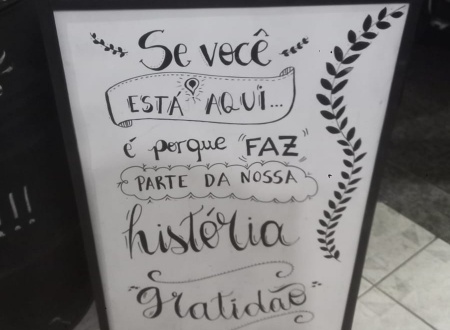 Se você
ESTÁ AQUI...
é porque "FAZ"
PARTE DA NOSSA
histéria
"gratidão"
!!